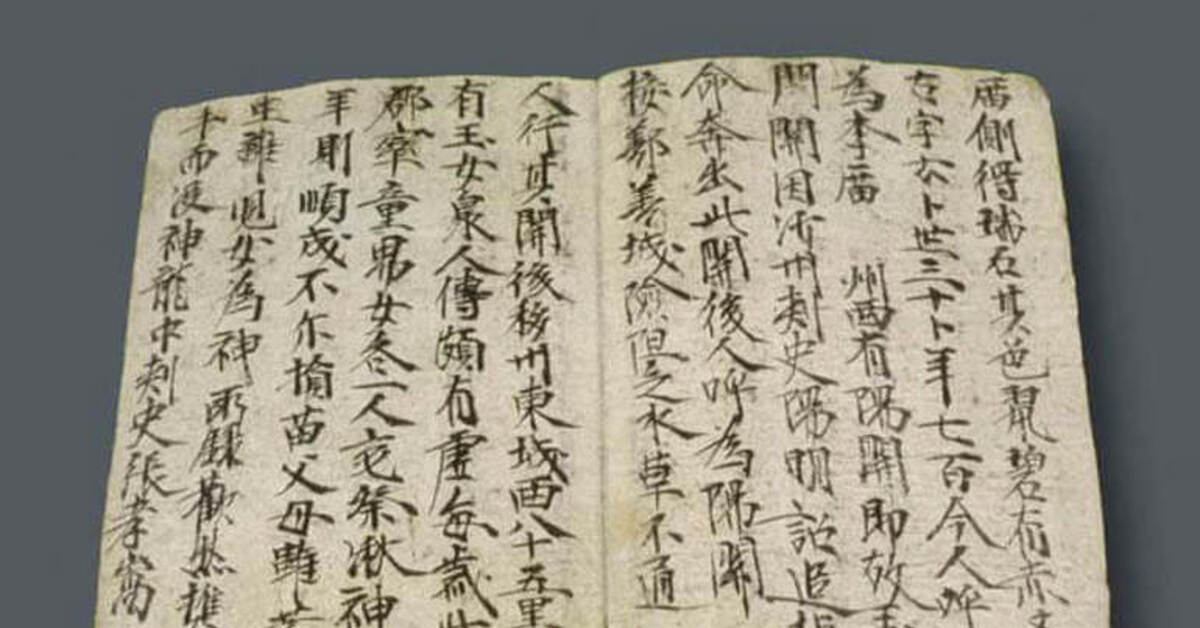 庿側得瑞石其色翠碧有赤文
古字云卜世三十卜年七百今人呼
為李庿 州西有陽關即故玉
門關因沙州刺史陽明詔追拒
命奔出此關後人呼為陽關
接鄯善城險阻乏水草不通
人行其關後移州東城西八十五里
有玉女泉人傳頗有虛每歲此
郡率童男女各一人充祭湫神
年則順成不尒損苗父母雖苦
生離兒女為神所録歡然攜
手而沒神龍中刺史張孝嵩